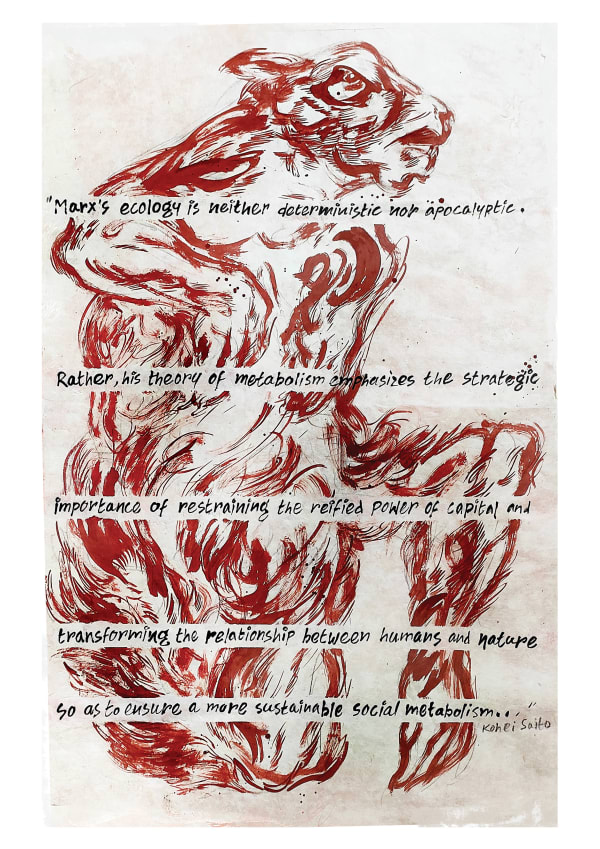 "Marx's ecology is neither deterministic nor apocalyptic.
Rather, his theory of metabolism emphasizes the strategic
importance of restraining the reified power of capital and
transforming the relationship between humans and nature
so as to ensure a more sustainable social metabolism..."
Kohei Saito